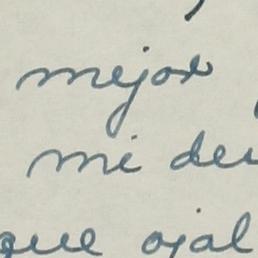 mejor
mi
que ojal